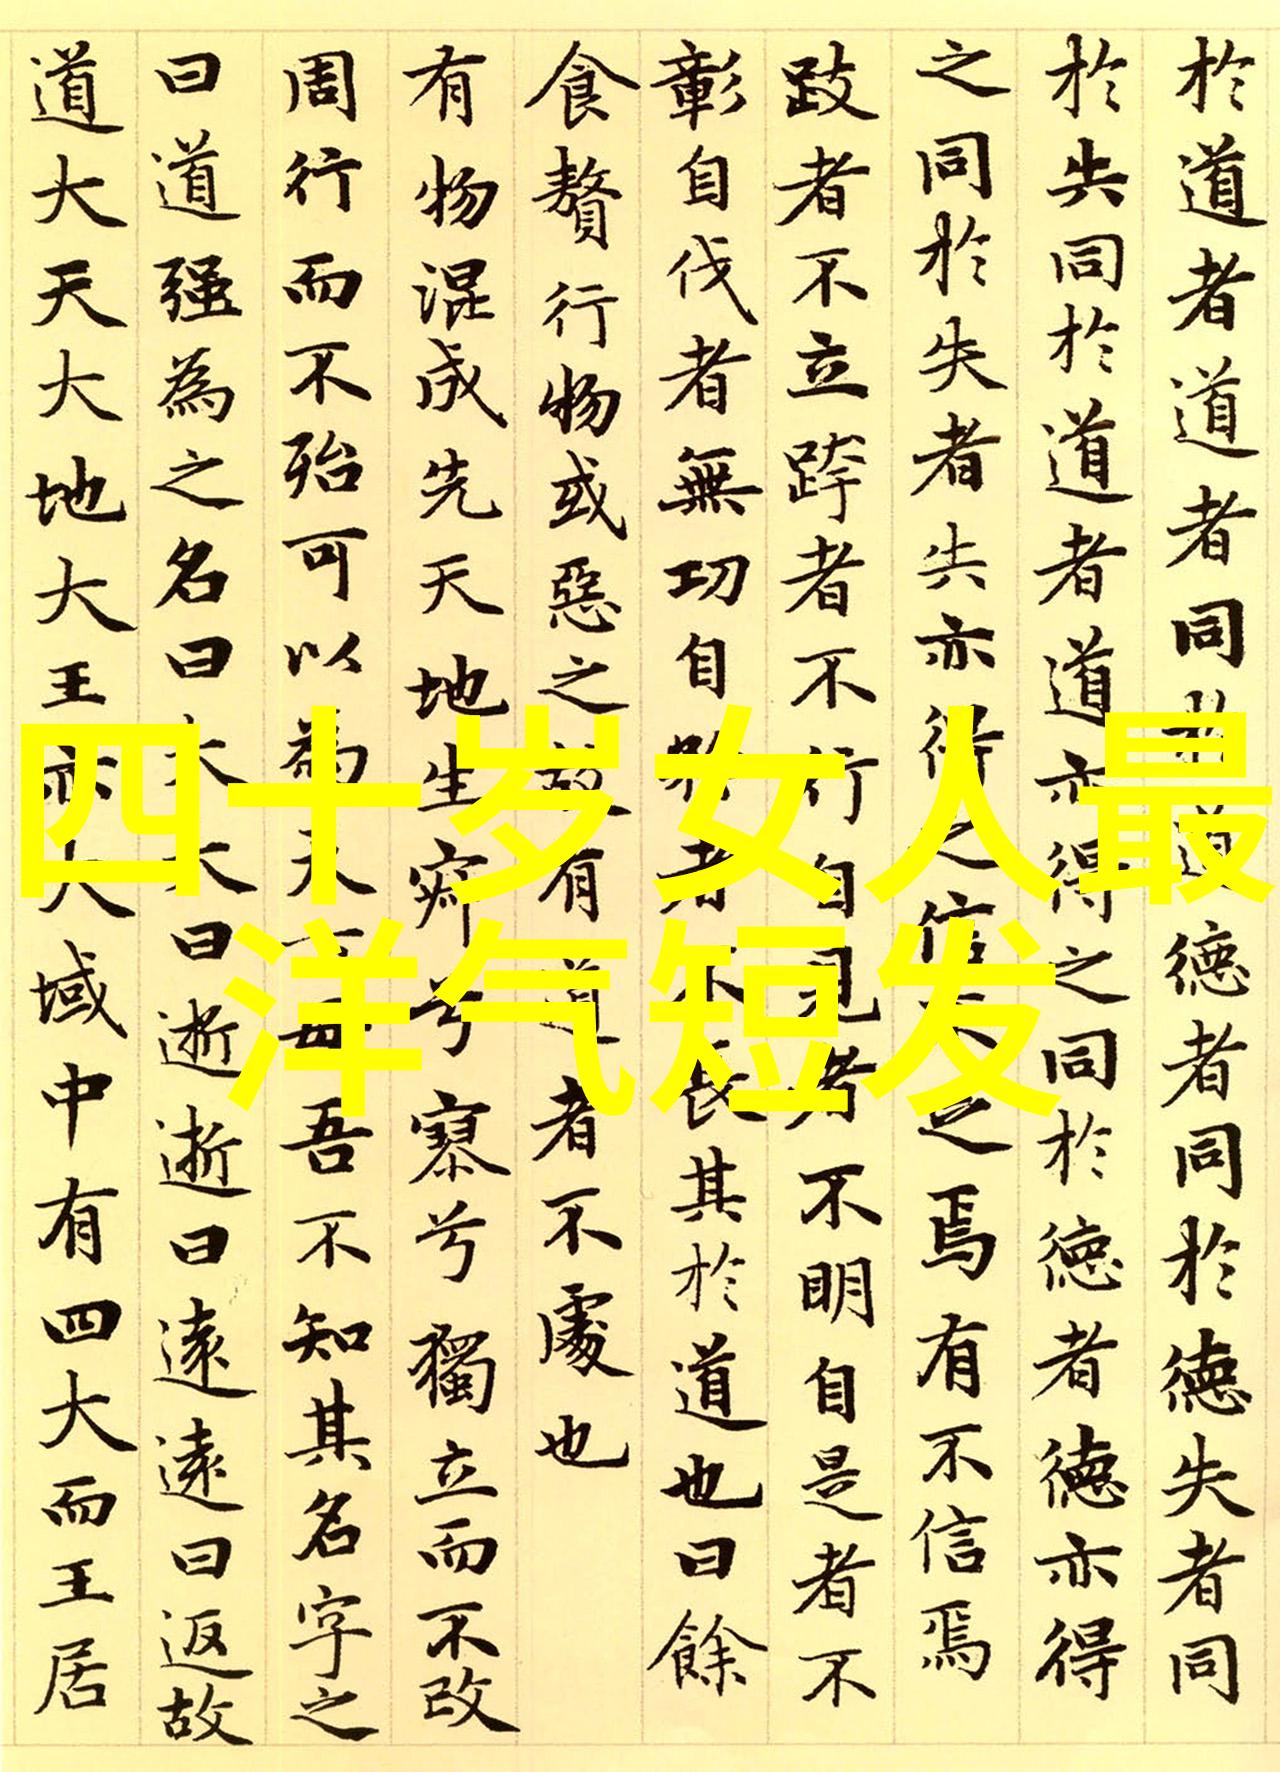 於道者道者同於道德者同於德失者同
於失同於道者道亦得之同於德者德亦得
之同於失者失亦得之信不足焉有不信焉
跂者不立跨者不行自見者不明自是者不
彰自伐者無功自矜者不長其於道也曰餘
食贅行物或惡之故有道者不處也
有物混成先天地生寂兮寥兮獨立而不改
周行而不殆可以為天下母吾不知其名字之
曰道强為之名曰大大曰逝逝曰遠遠曰返故
道大天大地大王亦大域中有四大而王居
四十岁女人最
洋气短发